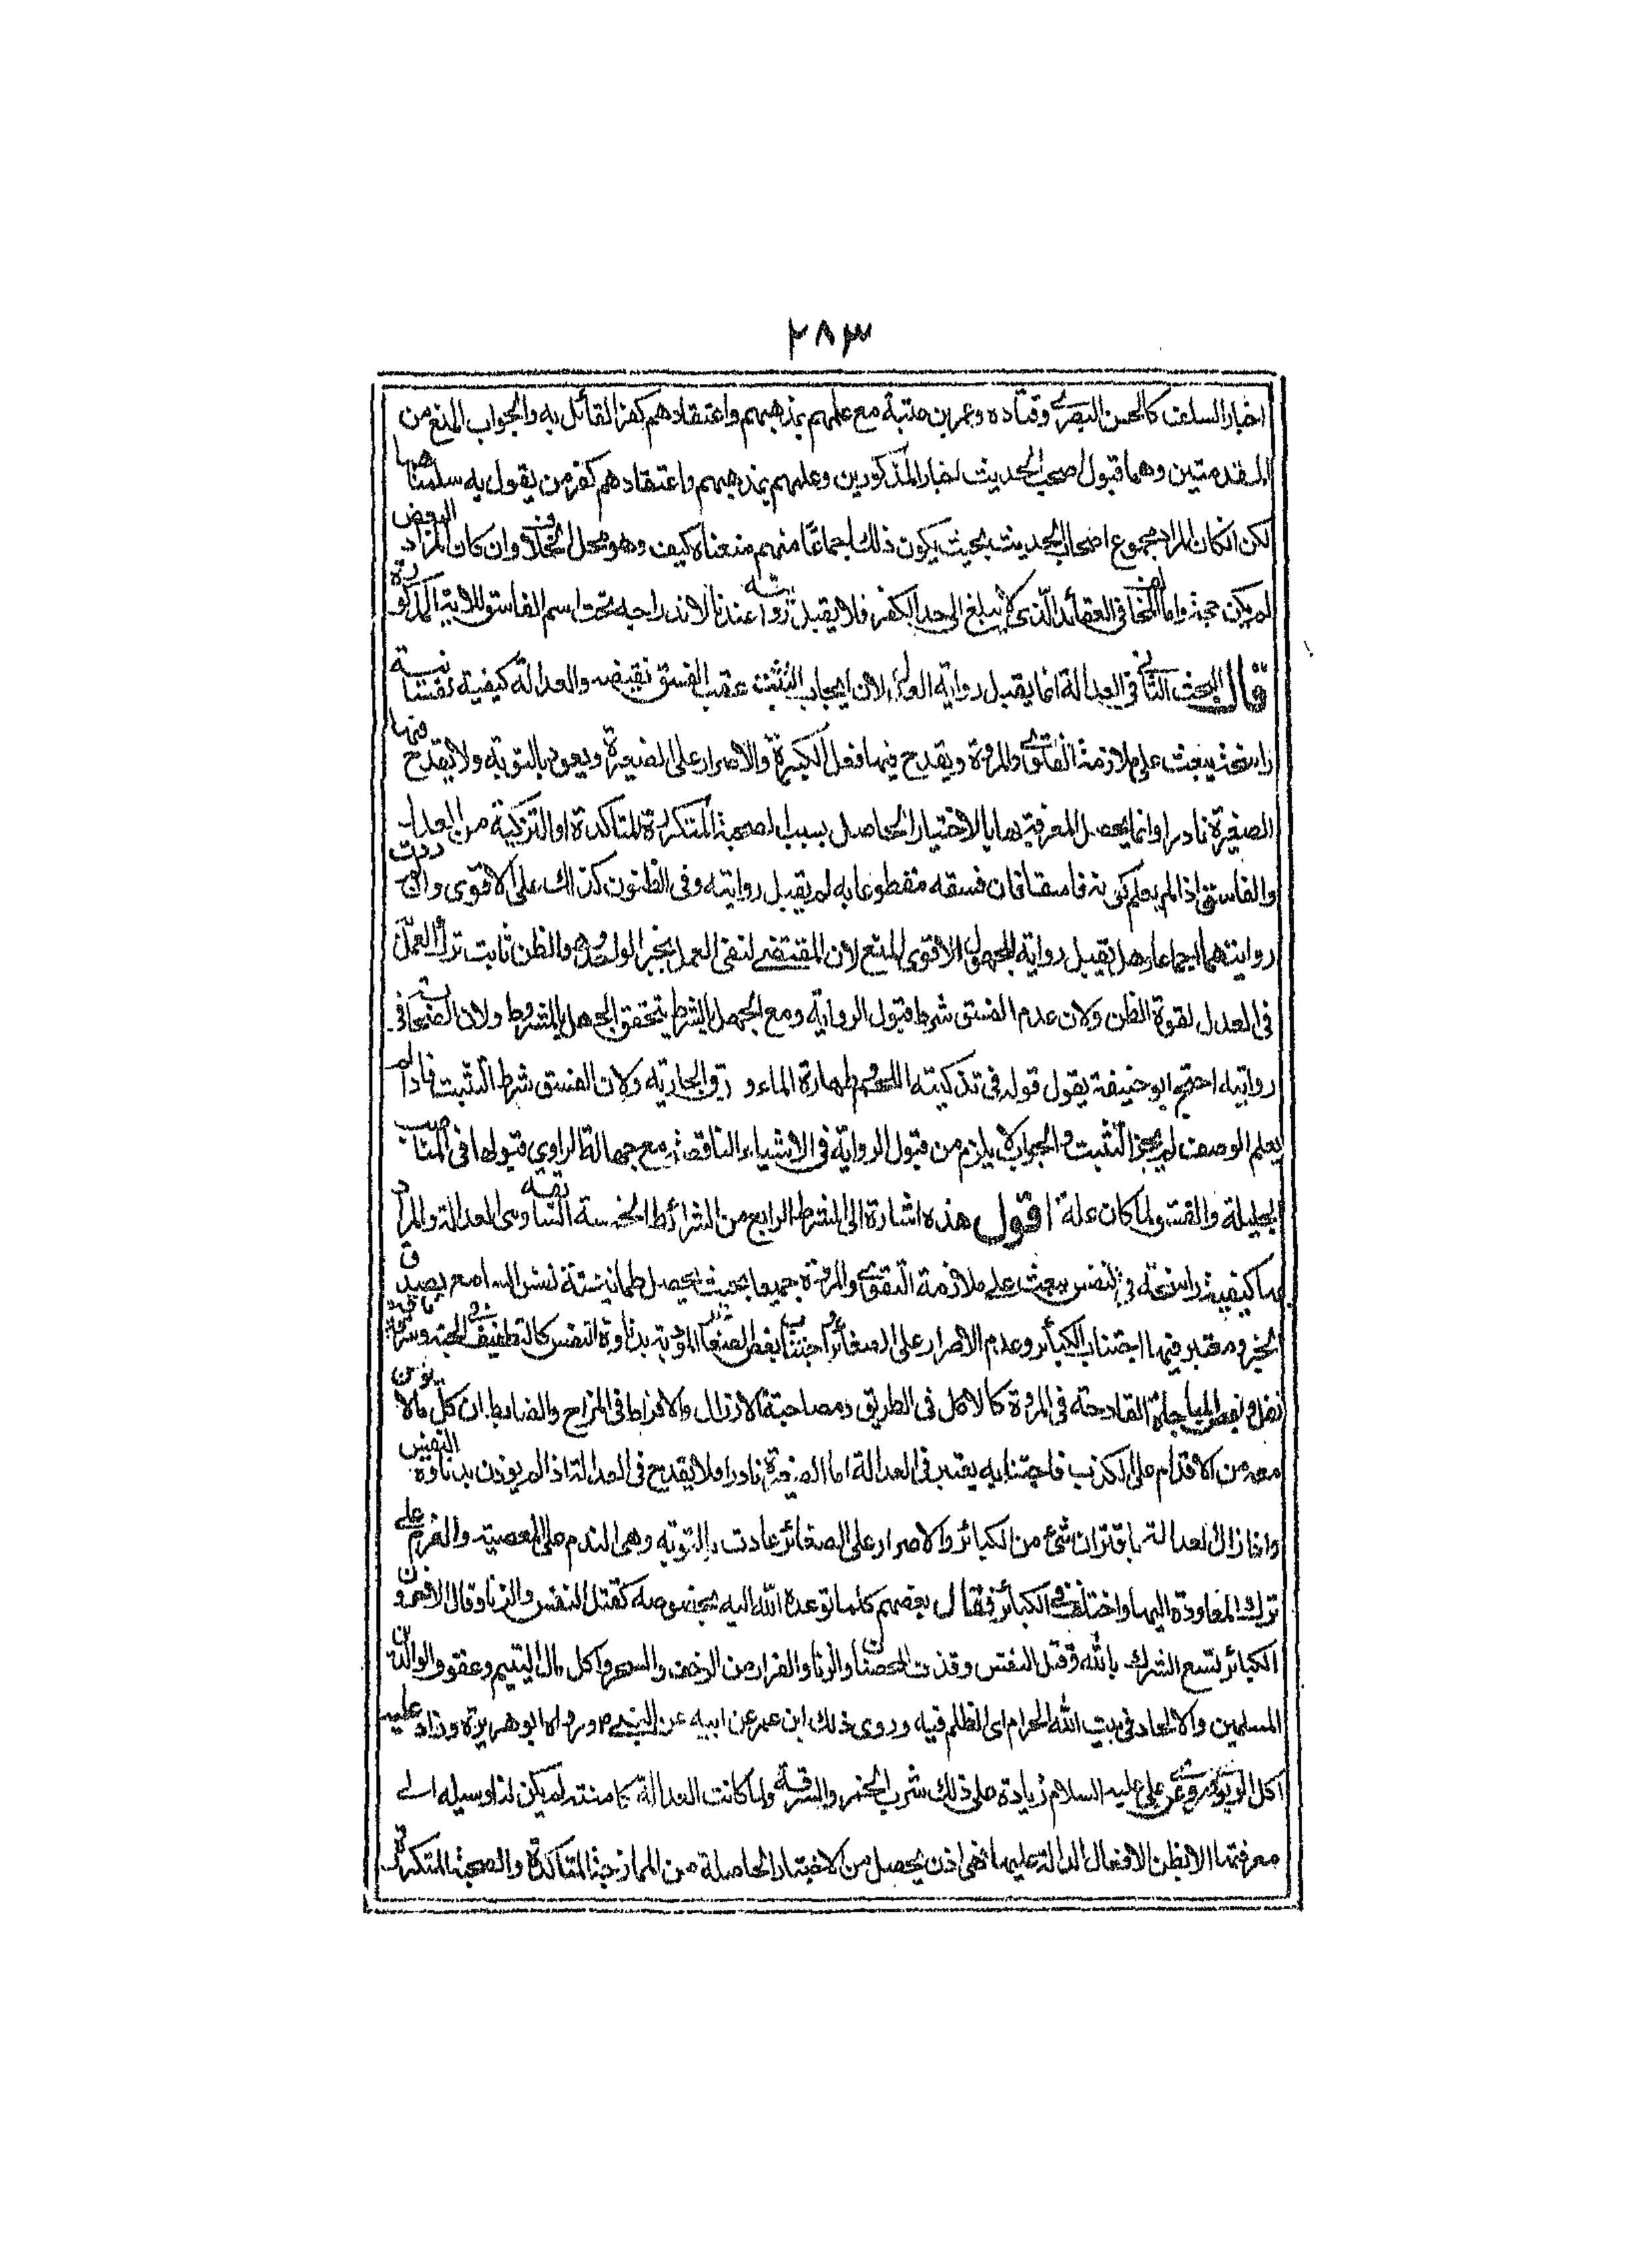 ٢٨٣
اخبار السلف كالحسن البصرى وقتاده وعمر بن عتبة مع علمهم بمذهبهم واعتقادهم كفر القائل به والجواب المنع من
المقدمتين وهما قبول اصحب الحديث اخبار المذكورين وعلمهم بمذهبهم واعتقادهم كفر من يقول به سلمناهما
لكن انكان المراد مجموع اصحاب الحديث بحيث يكون ذلك اجماعًا منهم منعناه كيف وهو محل الخلاف وان كان المراد البعض
لم يكن حجة واما المخالف فى العقائد الذى لا يبلغ الى حد الكفر فلا يقبل روايته عندنا لاندراجه تحت اسم الفاسق للاية المذكورة
قال البحث الثانى فى العدالة انما يقبل رواية العدل لان ايجاب التثبت عقب الفسق نقيضه والعدالة كيفية نفسانية
راسخة يبعث على ملازمة التقوى والمروة ويقدح فيها فعل الكبيرة والاصرار على الصغيرة ويعود بالتوبة ولا يقدح فيها
الصغيرة نادرا وانما يحصل المعرفة بها بالاختبار الحاصل بسبب الصحبة المتكررة المتاكدة او التزكية من العدل
والفاسق اذا لم يعلم كونه فاسقا فان فسقه مقطوعا به لم يقبل روايته وفى الظنون كذلك على الاقوى والا ردت
روايتهما اجماعا وهل يقبل رواية المجهول الاقوى المنع لان المقتضى لنفى العمل بخبر الواحد وهو الظن ثابت ترك العمل
فى العدل لقوة الظن ولان عدم الفسق شرط قبول الرواية ومع الجهل بالشرط يتحقق الجهل بالمشروط ولان الصحابة فى
روايه احتج ابو حنيفة يقول قوله فى تذكيته اللحم وطهارة الماء و رق الجارية ولان الفسق شرط التثبت فاذا لم
يعلم الوصف لم يجز التثبت والجواب لا يلزم من قبول الرواية فى الاشياء الناقصة مع جهالة الراوي قبولها فى المناصب
الجليلة والفسق ولما كان علة اقول هذه اشارة الى الشرط الرابع من الشرائط الخمسة السابقة وهى العدالة والمراد
بها كيفية راسخة فى النفس يبعث على ملازمة التقوى والمروة جميعا بحيث يحصل طمانينة نفس السامع بصدق
الخبر ومعتبر فيها اجتناب الكبائر وعدم الاصرار على الصغائر واجتناب بعض الصغائر المؤدية بدناءة النفس كالتطفيف فى الحبة وسرقة
نفل وبعض المباحات القادحة فى المروة كالاكل فى الطريق ومصاحبة الارذال والافراط فى المزاح والضابط ان كل ما لا يؤمن
معه من الاقدام على الكذب فاجتنابه يعتبر فى العدالة اما الصغيرة نادرا فلا يقدح فى العدالة اذ لم يوذن بدناءة النفس
واذا زال العدالة باقتران شئ من الكبائر والاصرار على الصغائر عادت بالتوبة وهى الندم على المعصية والعزم على
ترك المعاودة اليها واختلف فى الكبائر فقال بعضهم كلما توعده الله اليه بخصوصه كقتل النفس والزنا وقال الاخرون
الكبائر تسع الشرك بالله وقتل النفس وقذف المحصنات والزنا والفرار من الزحف والسحر واكل مال اليتيم وعقوق الوالدين
المسلمين والالحاد فى بيت الله الحرام اى الظلم فيه وروى ذلك ابن عمر عن ابيه عن النبى ص ورواه ابو هريرة وزاد عليه
اكل الربوا وروى عن على عليه السلام زيادة على ذلك شرب الخمر والسرقة ولما كانت العدالة كامنة لم يكن لنا وسيلة الى
معرفتها الا بظن الافعال الدالة عليها فهى اذن يحصل من الاختبار الحاصلة من الممازجة المتاكدة والصحبة المتكررة